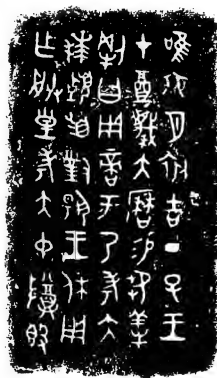 唯六月初吉丁巳王
才奠蔑大曆易芻𲈁
犅曰用啻于乃考大
拜𩒨首對揚王休用
乍朕皇考大中尊𣪘